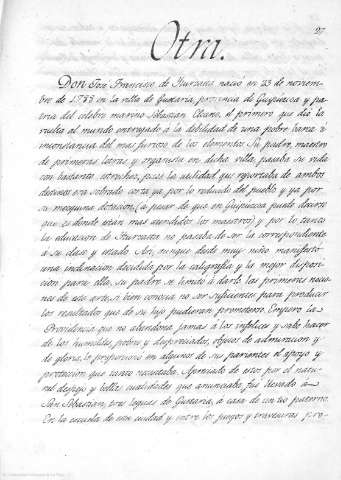 97
Otra.
Don Jose Francisco de Iturzaeta nació en 23 de noviem-
bre de 1788 en la villa de Guetaria, provincia de Guipúzcoa y pa-
tria del celebre marino Sebastian Elcano, el primero que dió la
vuelta al mundo entregado á la debilidad de una pobre barca é
inconstancia del mas furioso de los elementos. Su padre, maestro
de primeras letras y organista en dicha villa pasaba su vida
con bastante estrechez, pues la utilidad que reportaba de ambos
destinos era sobrado corta ya por lo reducido del pueblo y ya por
su mezquina dotacion, (a pesar de que en Guipuzcoa puede decirse
que es donde estan mas atendidos los maestros) y por lo tanto
la educacion de Iturzaeta no pasaba de ser la correspondiente
a su clase y estado. Asi, aunque desde muy niño manifestó
una inclinacion decidida por la caligrafia y la mejor disposi-
cion para ella, su padre se limitó á darle las primeras nocio-
nes de este arte, si bien conocia no ser suficientes para producir
los resultados que de su hijo pudieran prometerse. Empero la
Providencia que no abandona jamas á los infelices y sabe hacer
de los humildes, pobres y despreciados, objetos de admiracion y
de gloria, le proporcionó en algunos de sus parientes el apoyo y
proteccion que tanto necesitaba. Apreciado de estos por el natu-
ral despejo y bellas cualidades que anunciaba fue llevado a
San Sebastian, tres leguas de Guetaria, á casa de un tio paterno.
En la escuela de esta ciudad y entre los juegos y travesuras pro-